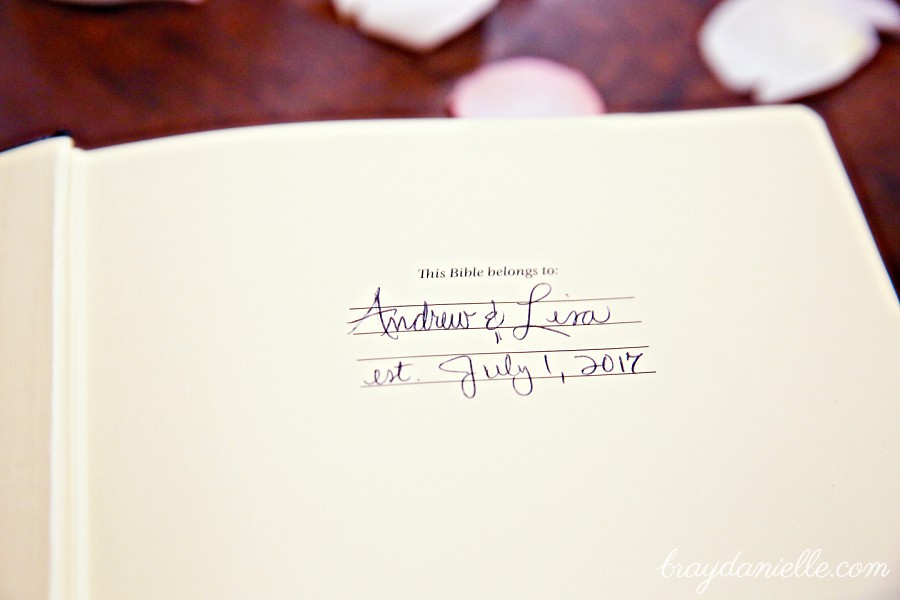 This Bible belongs to:
Andrew & Lisa
est. July 1, 2017
braydanielle.com